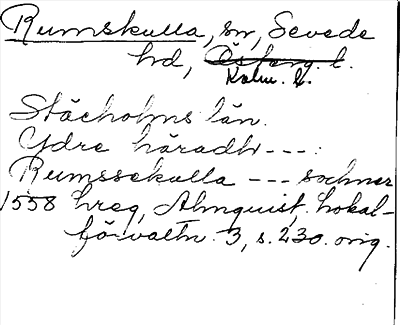 Rumskulla, sn, Sevede
hd, Österg. l.
Kalm. l.
Stächolms län.
Ydre häradh ---:
Rumssekulla --- sochner
1558 hreg, Almquist. Lokal-
förvaltn. 3, s. 230. orig.